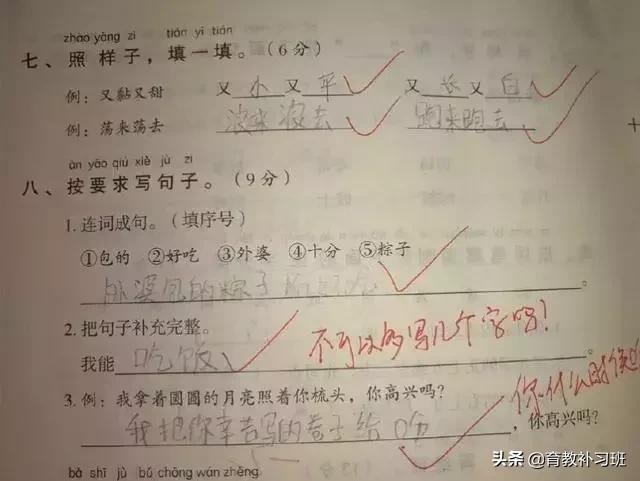 zhào yàng zi tián yī tián
七、照样子，填一填。（6分）
例：又黏又甜 又小又平 又长又白
例：荡来荡去 滚来滚去 跑来跑去
àn yāo qiú xiě jù zi
八、按要求写句子。（9分）
1.连词成句。（填序号）
①包的 ②好吃 ③外婆 ④十分 ⑤粽子
外婆包的粽子十分好吃。
2.把句子补充完整。
我能吃饭。
不可以多写几个字吗？
3.例：我拿着圆圆的月亮照着你梳头，你高兴吗？
你什么时候
我把你辛苦写的卷子给，你高兴吗？
bǎ shī jù bǔ chōng wán zhěng
头条 @育教补习班